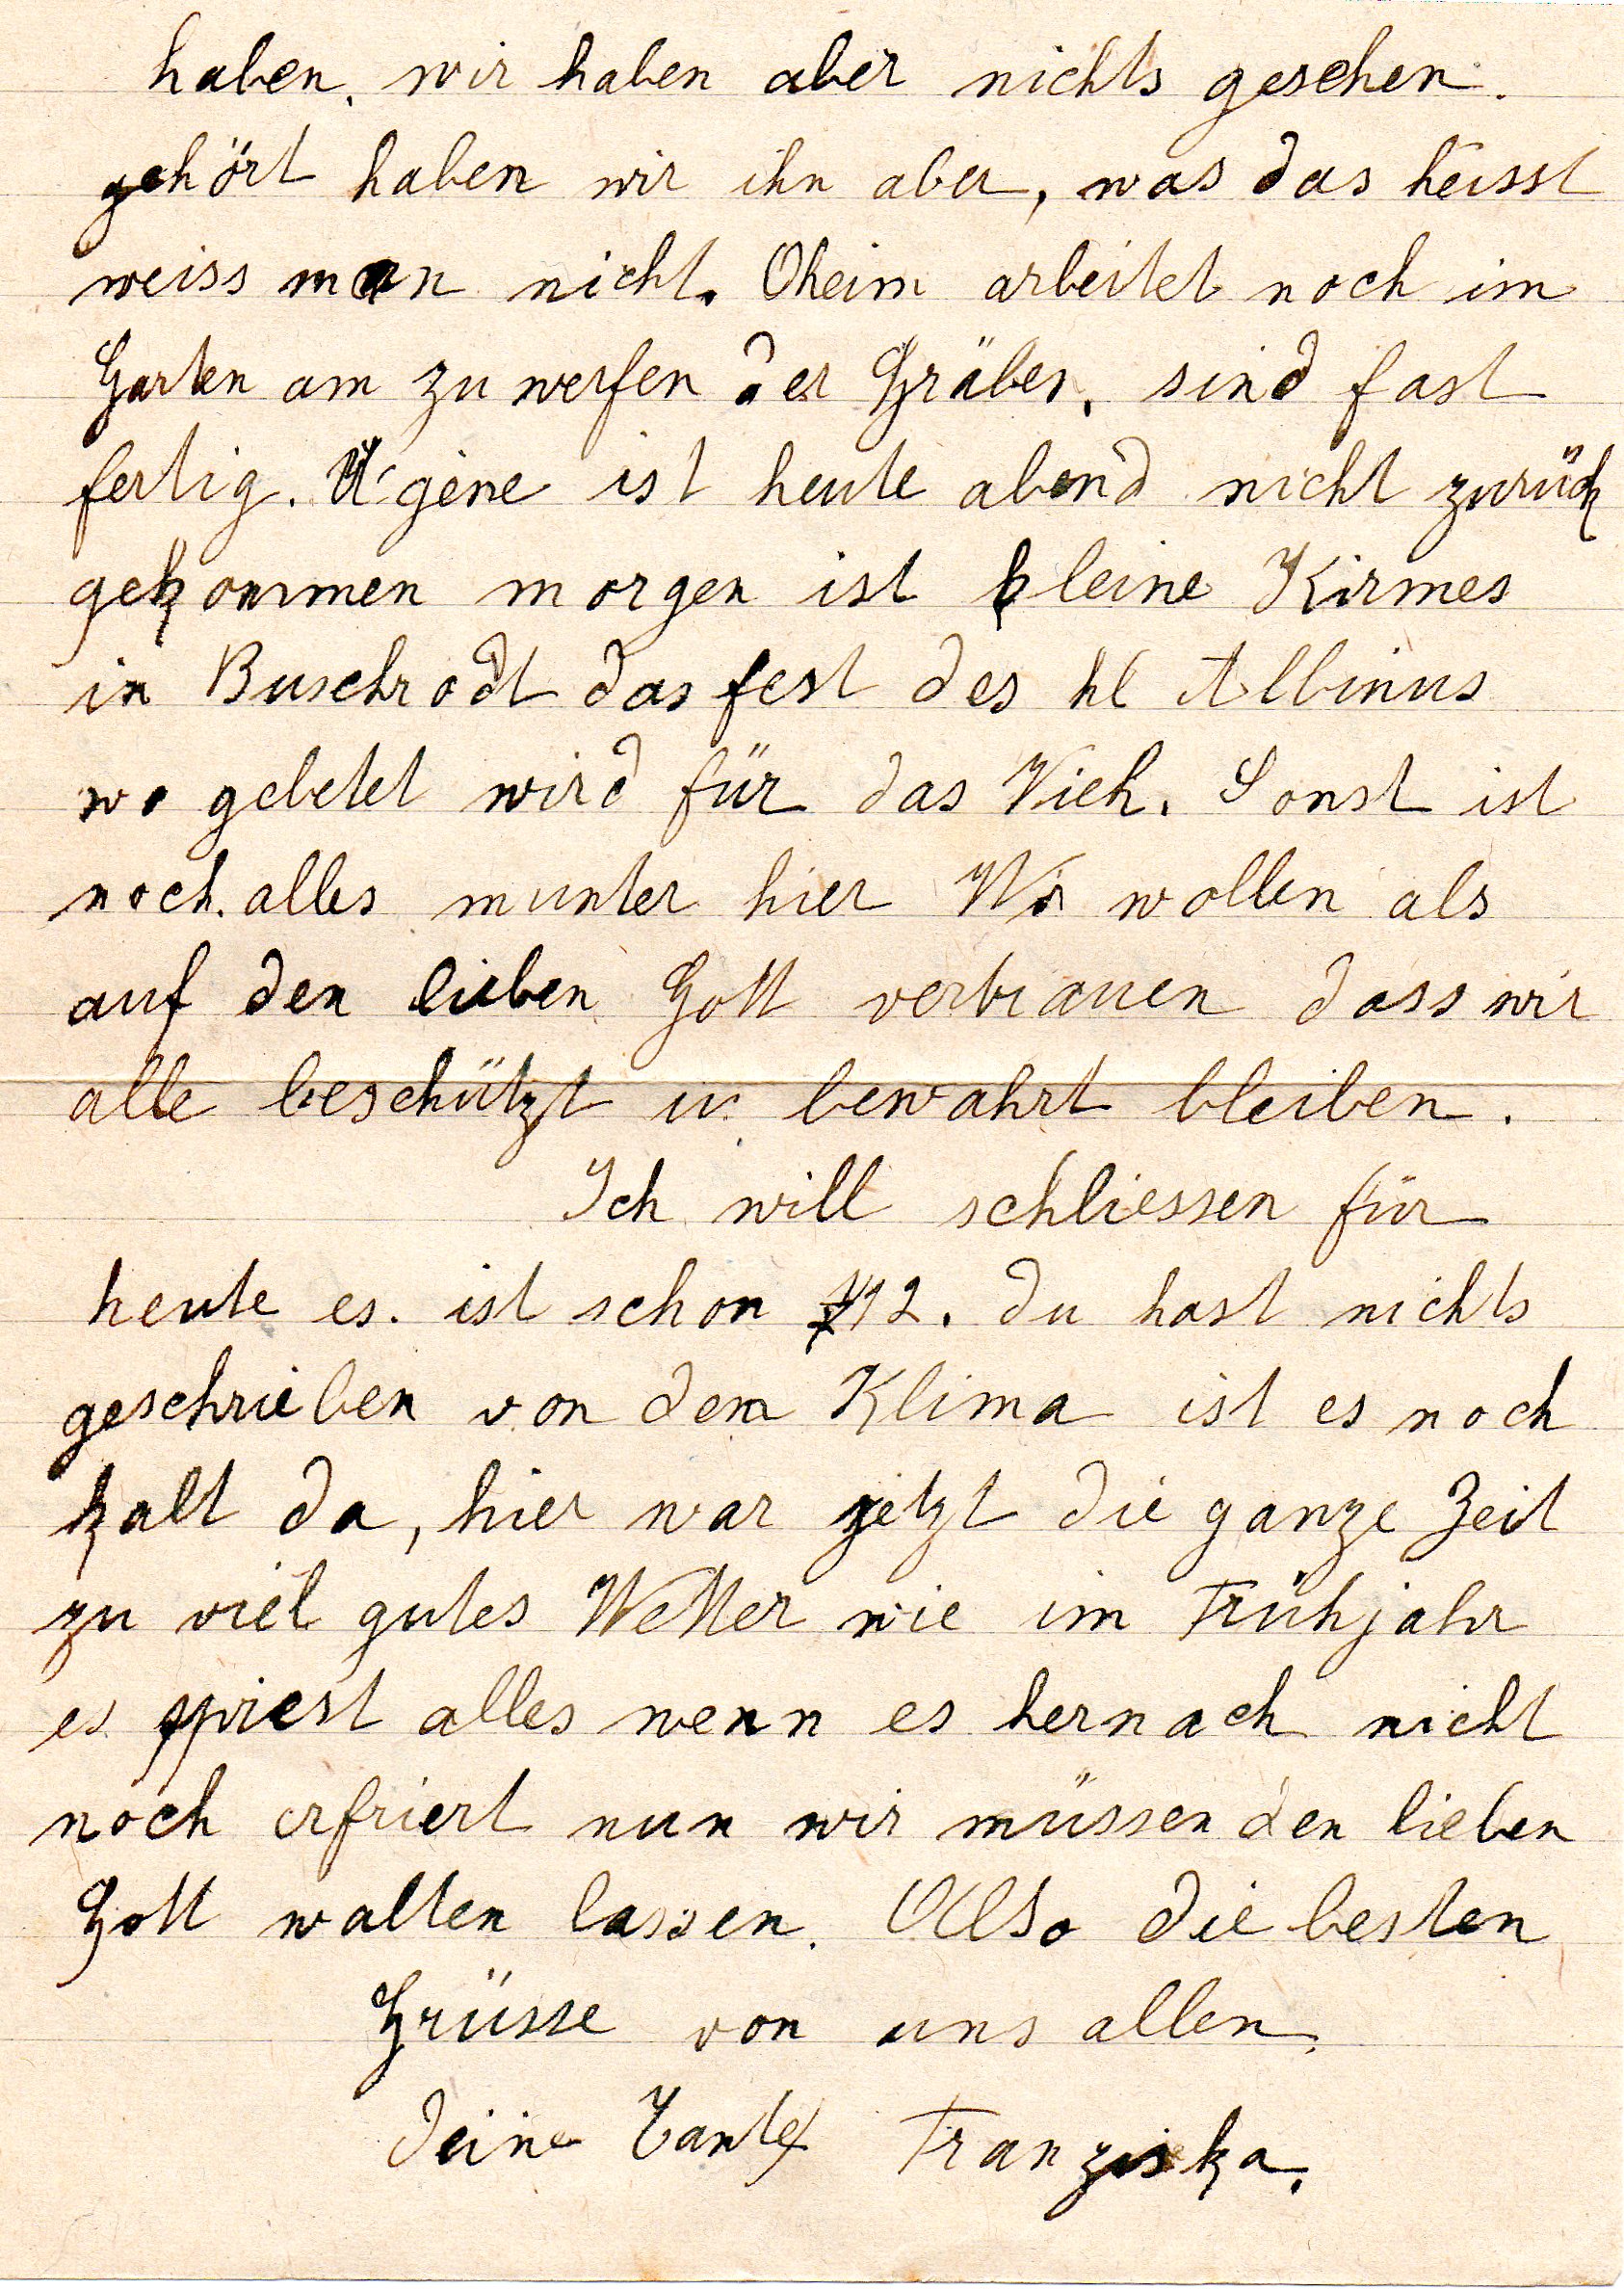 haben, wir haben aber nichts gesehen.
gehört haben wir ihn aber, was das heisst
weiss man nicht. Oheim arbeitet noch im
Garten am zu werfen der Gräber, sind fast
fertig. ist heute abend nicht zurück
gekommen morgen ist kleine Kirmes
in Buschrodt das fest des hl Albinus
wo gebetet wird für das Vieh. Sonst ist
noch alles munter hier Wir wollen als
auf den lieben Gott vertrauen dass wir
alle beschützt u. bewahrt bleiben.
Ich will schliessen für
heute es ist schon 12. du hast nichts
geschrieben von dem Klima ist es noch
kalt da, hier war jetzt die ganze Zeit
zu viel gutes Wetter wie im Frühjahr
es spriest alles wenn es hernach nicht
noch erfriert nun wir müssen den lieben
Gott walten lassen. Also die besten
Grüsse von uns allen.
deine Tante Franziska.